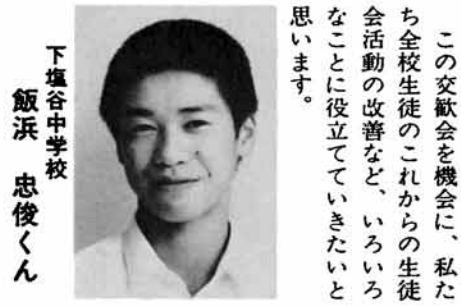 この交歓会を機会に、私た
ち全校生徒のこれからの生徒
会活動の改善など、いろいろ
なことに役立てていきたいと
思います。
下塩谷中学校
飯浜　忠俊くん